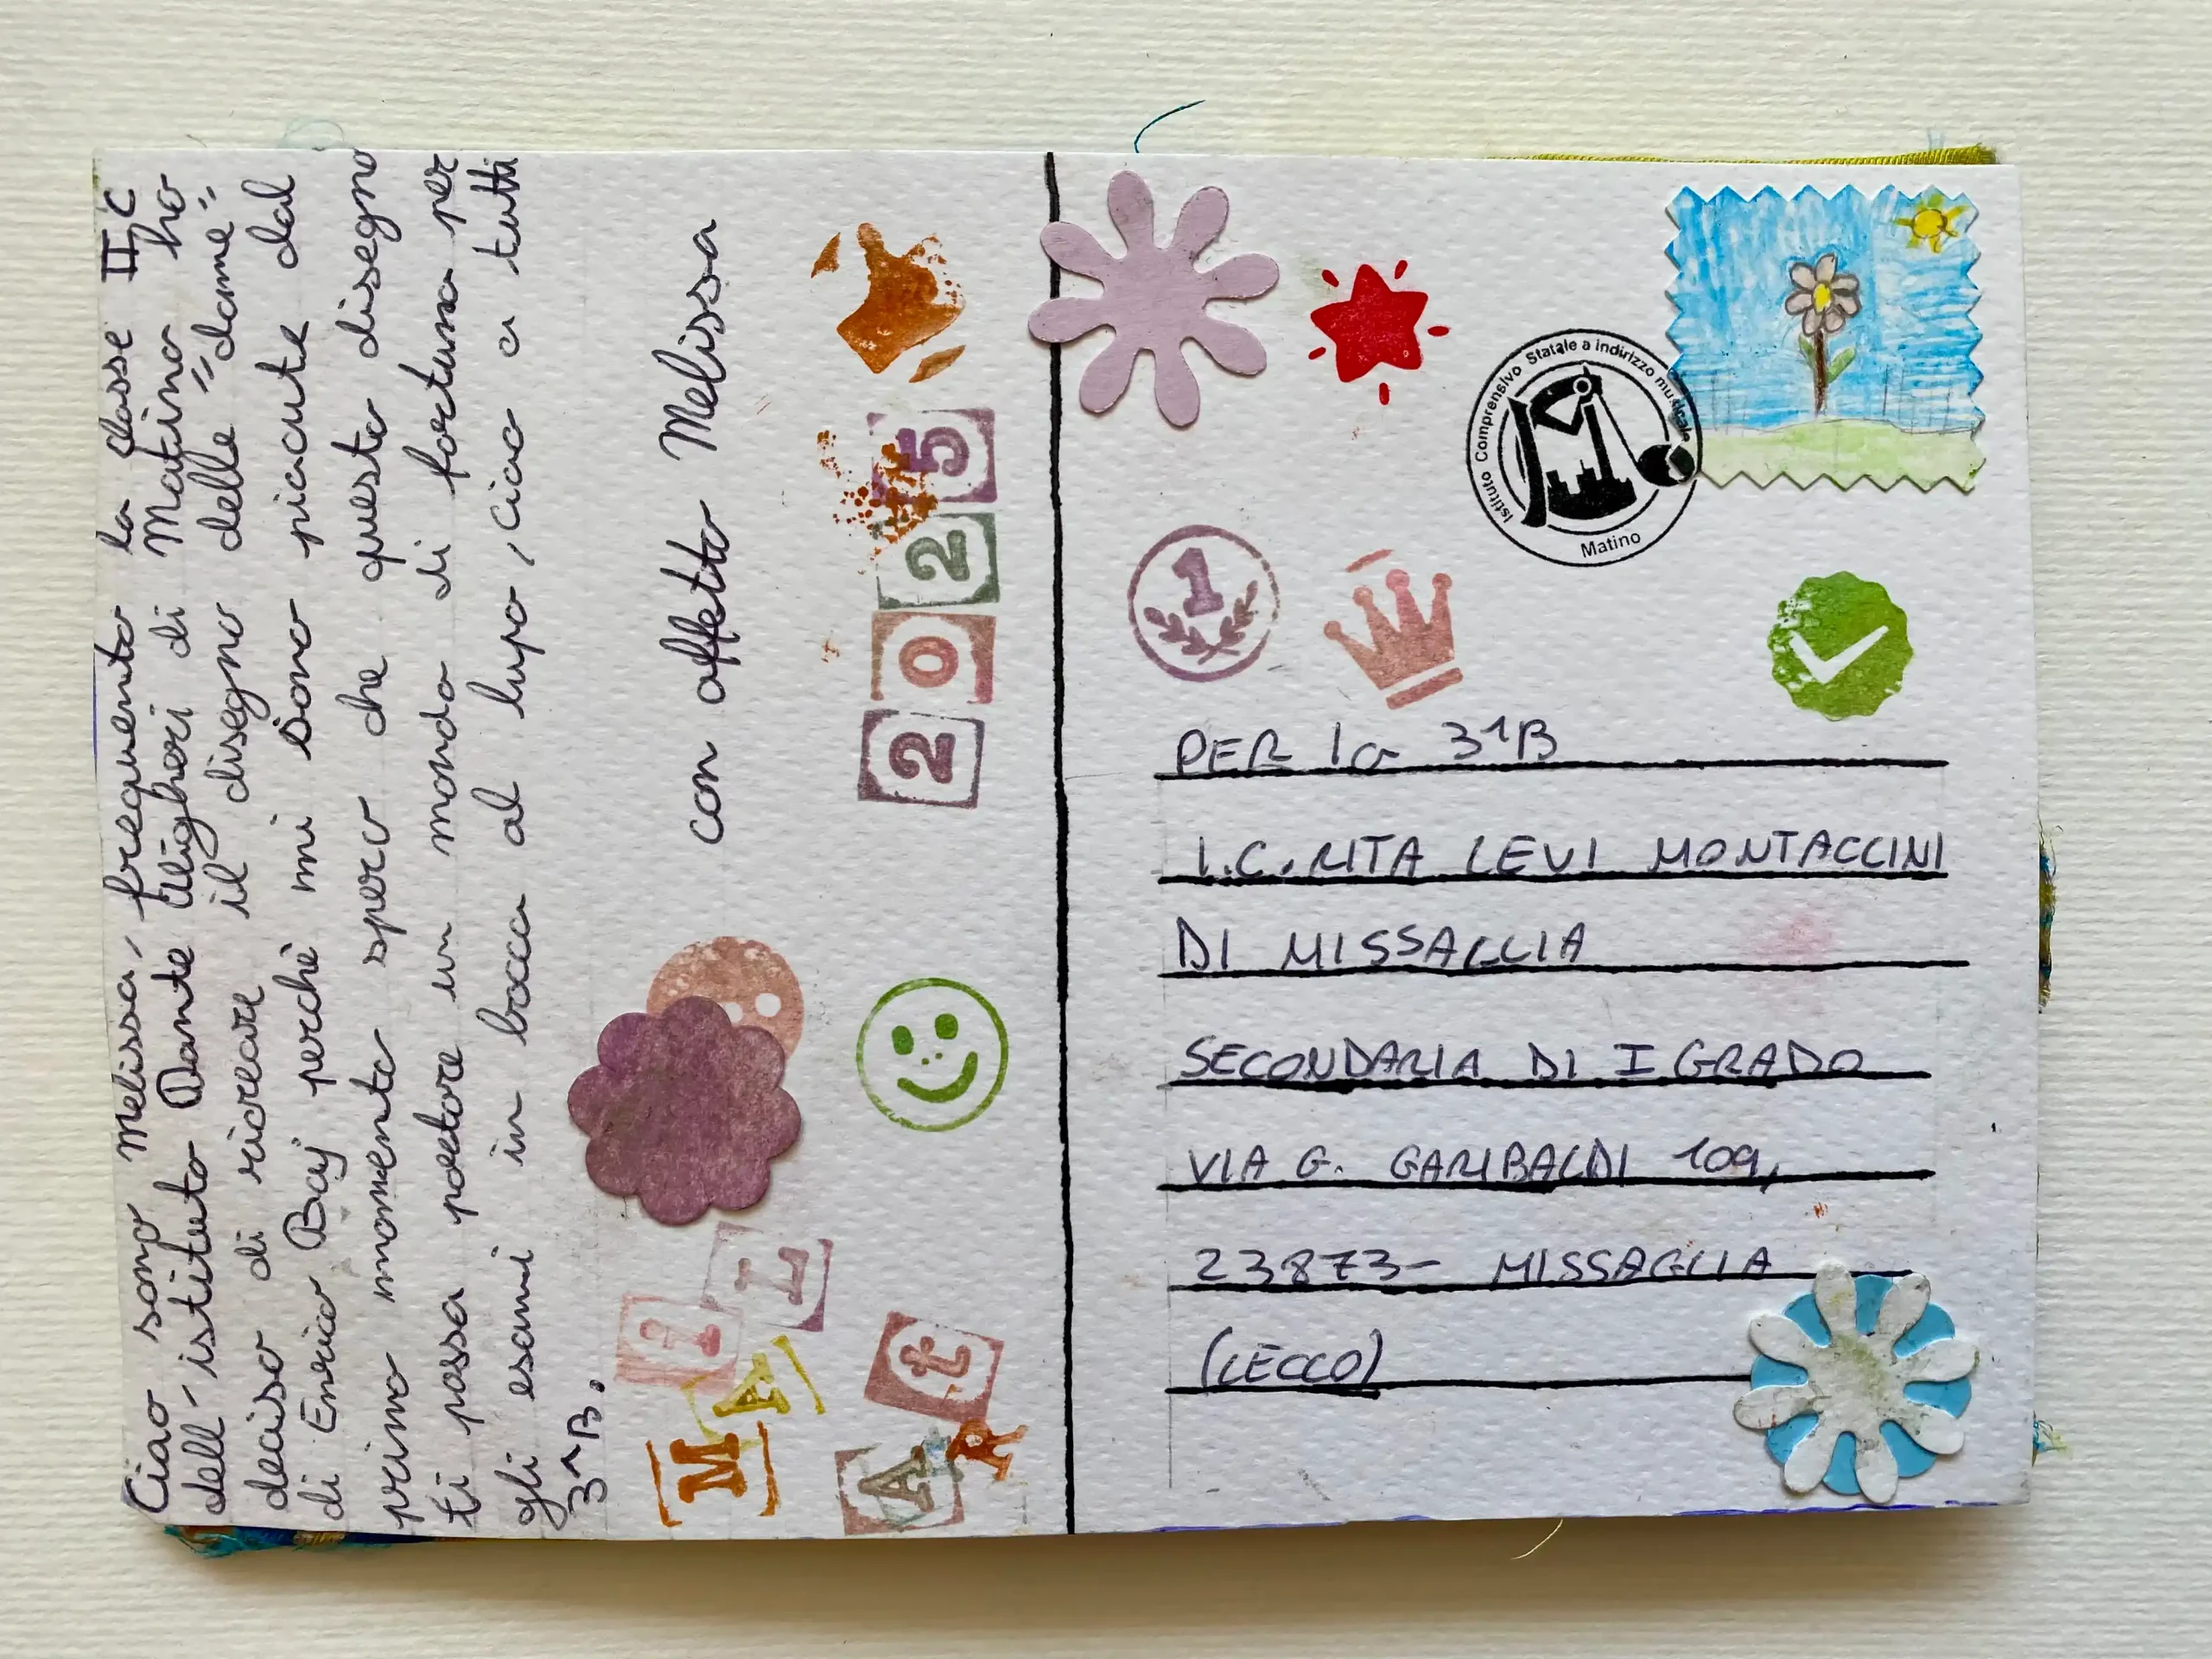 Ciao sono Melissa, frequento la classe II C
dell'istituto Dante Alighieri di Matino ho
deciso di ricreare il disegno delle "dame"
di Enrico Baj perchè mi sono piaciute dal
primo momento spero che questo disegno
ti possa portare in mondo di fortuna per
gli esami in bocca al lupo, ciao a tutti
3^B.
con affetto Melissa
2025
M A i I
A R t
Istituto Comprensivo Statale a indirizzo musicale
Matino
1
PER la 3^B
I.C. RITA LEVI MONTACCINI
DI MISSAGLIA
SECONDARIA DI I GRADO
VIA G. GARIBALDI 109,
23873- MISSAGLIA
(LECCO)